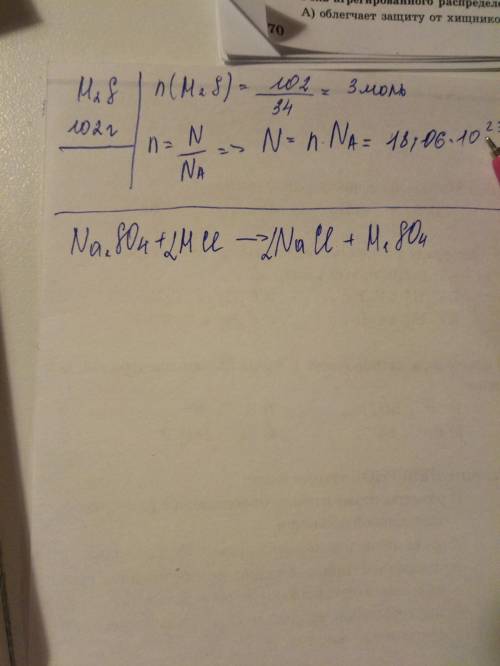 агрегированного распределе
А) облегчает защиту от хищнико
70
H₂S | n(H₂S) = 102/34 = 3 моль
102 г | n = N/NA => N = n · NA = 18,06 · 10²³
Na₂SO₄ + 2HCl → 2NaCl + H₂SO₄